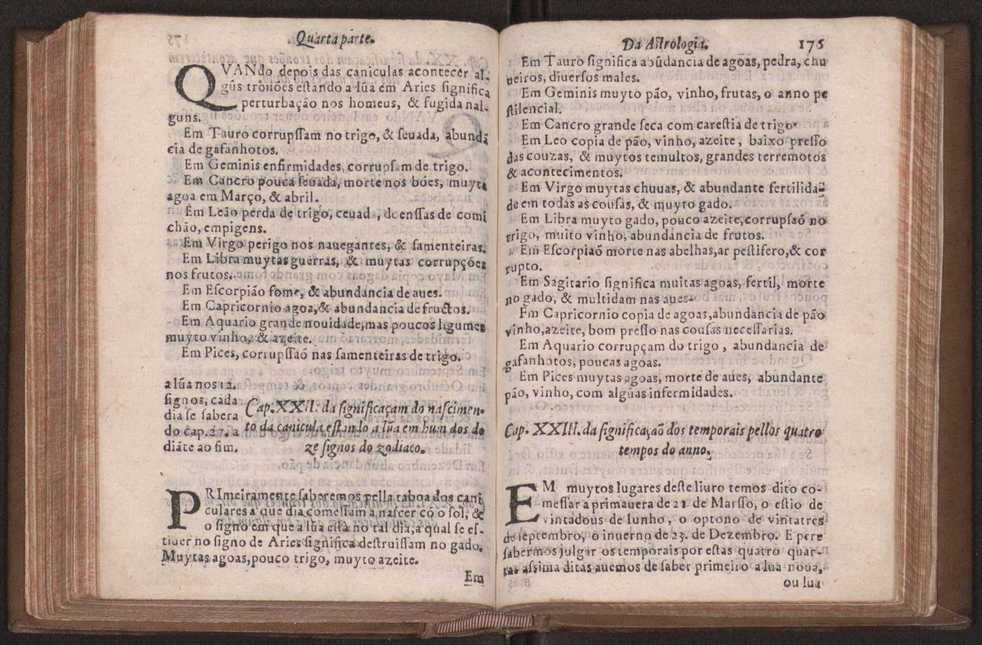 Quarta parte.
QVANdo depois das caniculas acontecer al-
gũs trouões estando a lũa em Aries significa
perturbação nos homeus, & fugida nal-
guns.
Em Tauro corrupssam no trigo, & seuada, abundã
cia de gafanhotos.
Em Geminis enfirmidades, corrupsam de trigo.
Em Cancro pouca seuada, morte nos bóes, muyta
agoa em Março, & abril.
Em Leão perda de trigo, ceuad , doenssas de comi
chão, empigens.
Em Virgo perigo nos nauegantes, & samenteiras.
Em Libra muytas guerras, & muytas corrupções
nos frutos.
Em Escorpião fome, & abundancia de aues.
Em Capricornio agoa, & abundancia de fructos.
Em Aquario grande nouidade, mas poucos ligumes
muyto vinho, & azeite.
Em Pices, corrupssaó nas samenteiras de trigo.
a lũa nos 12.
signos, cada
dia se sabera
do cap. 27. a
diãte ao fim.
Cap. XXII. da significaçam do nascimen-
to da canicula estando a lũa em hum dos do
ze signos do zodiaco.
PRImeiramente saberemos pella taboa dos cani
culares a que dia comessam a nascer có o sol, &
o signo em que a lũa está no tal dia, a qual se es-
tiuer no signo de Aries significa destruissam no gado.
Muytas agoas, pouco trigo, muyto azeite.
Em
Da Astrologia. 175
Em Tauro significa abũdancia de agoas, pedra, chu
ueiros, diuersos males.
Em Geminis muyto pão, vinho, frutas, o anno pe
stilencial.
Em Cancro grande seca com carestia de trigo.
Em Leo copia de pão, vinho, azeite , baixo presso
das couzas, & muytos temultos, grandes terremotos
& acontecimentos.
Em Virgo muytas chuuas, & abundante fertilida-
de em todas as cousas, & muyto gado.
Em Libra muyto gado, pouco azeite, corrupsaó no
trigo, muito vinho, abundancia de frutos.
Em Escorpiaõ morte nas abelhas, ar pestifero, & cor
rupto.
Em Sagitario significa muitas agoas, fertil, morte
no gado, & multidam nas aues.
Em Capricornio copia de agoas, abundancia de pão
vinho, azeite, bom presso nas cousas necessarias.
Em Aquario corrupçam do trigo , abundancia de
gafanhotos, poucas agoas.
Em Pices muytas agoas, morte de aues, abundante
pão, vinho, com algũas infermidades.
Cap. XXIII. da significação dos temporais pellos quatro
tempos do anno.
EM muytos lugares deste liuro temos dito co-
messar a primauera de 21 de Marsso, o estio de
vintadous de Iunho, o optono de vintatres
de septembro, o inuerno de 23. de Dezembro. E pera
sabermos julgar os temporais por estas quatro quar-
tas assima ditas auemos de saber primeiro a lua noua,
ou lua